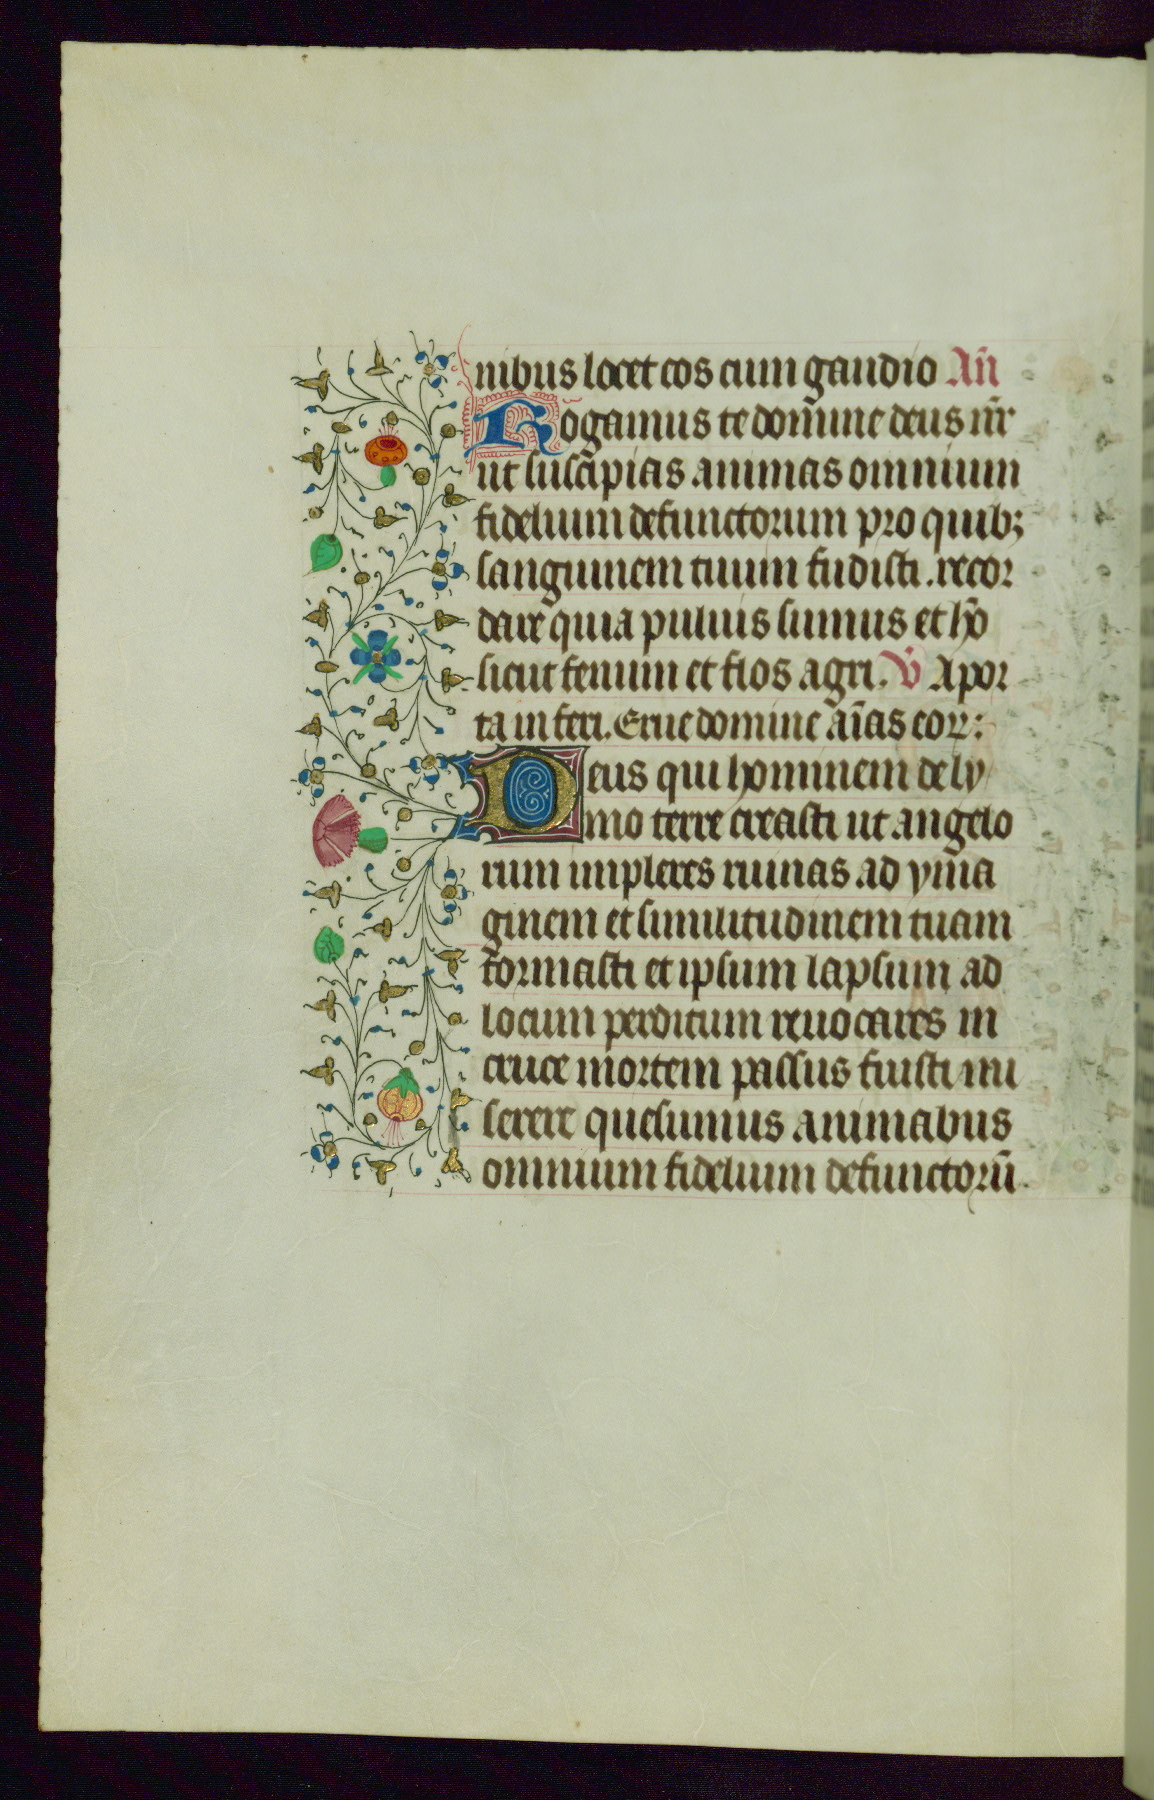 nibus locet eos cum gaudio An̄
Rogamus te domine deus nr̄
ut suscipias animas omnium
fidelium defunctorum pro quibꝫ
sanguinem tuum fudisti. recor
dare quia puluis sumus et hō
sicut fenum et flos agri. V̄ A por
ta inferi. Erue domine aīas eoꝝ:
Deus qui hominem de ly
mo terre creasti ut angelo
rum impleres ruinas ad yma
ginem et similitudinem tuam
formasti et ipsum lapsum ad
locum perditum reuocares in
cruce mortem passus fuisti mi
serere quesumus animabus
omnium fidelium defunctorū.